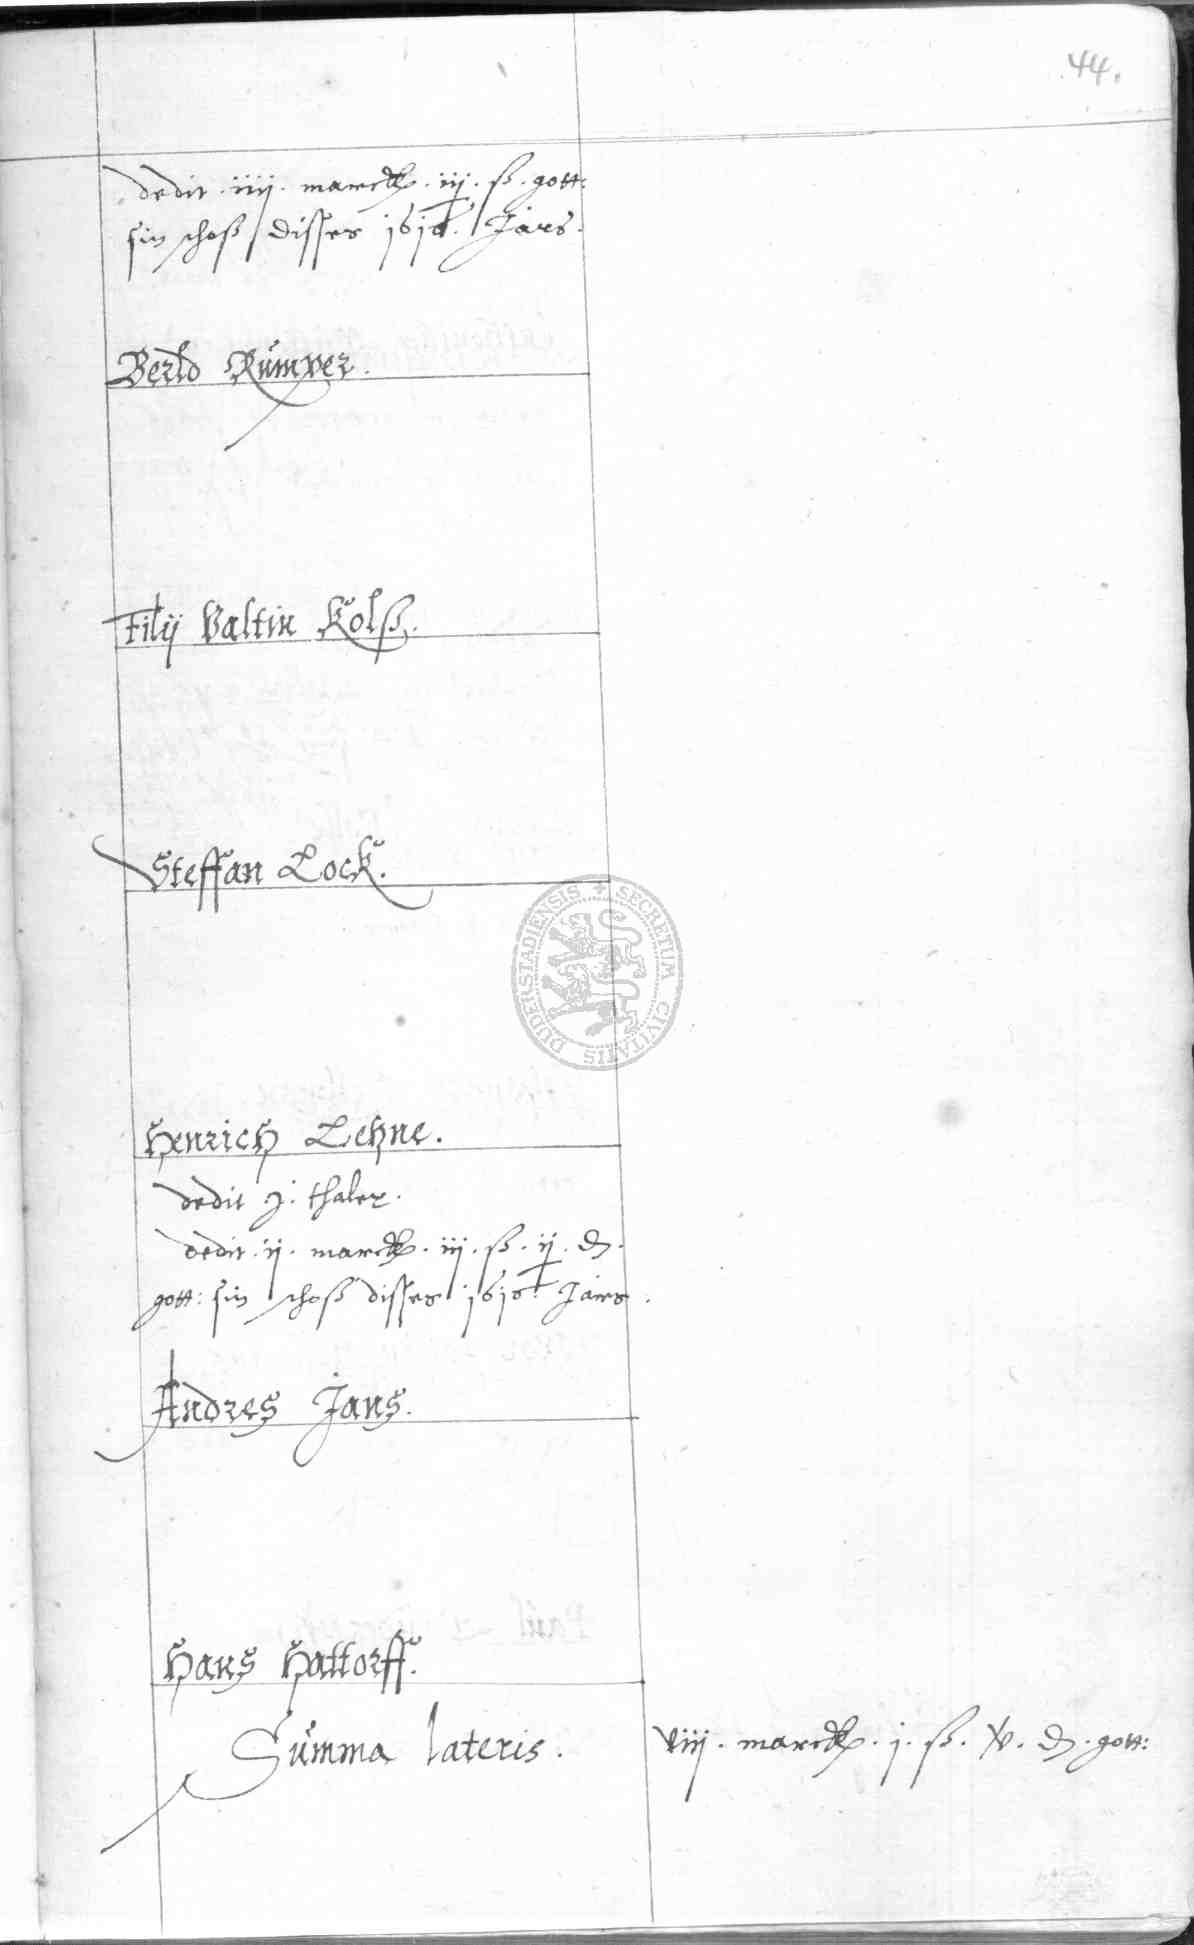 44.
dedit . iiij . marck . iij . ß . gott:
sin schoß disses 1618. Jars.
Bertd Rümper.
Filij Valtin Kolß.
Steffan Lock.
DUDERSTADIENSIS + SECRETUM CIVITATIS
Henrich Lehne.
dedit j. thaler.
dedit . ij . marck . iij . ß . ij . d .
gott: sin schoß disses 1618. Jars .
Andres Jans.
Hans Hattorff.
Summa lateris . viij . marck . j . ß . v . d . gott: